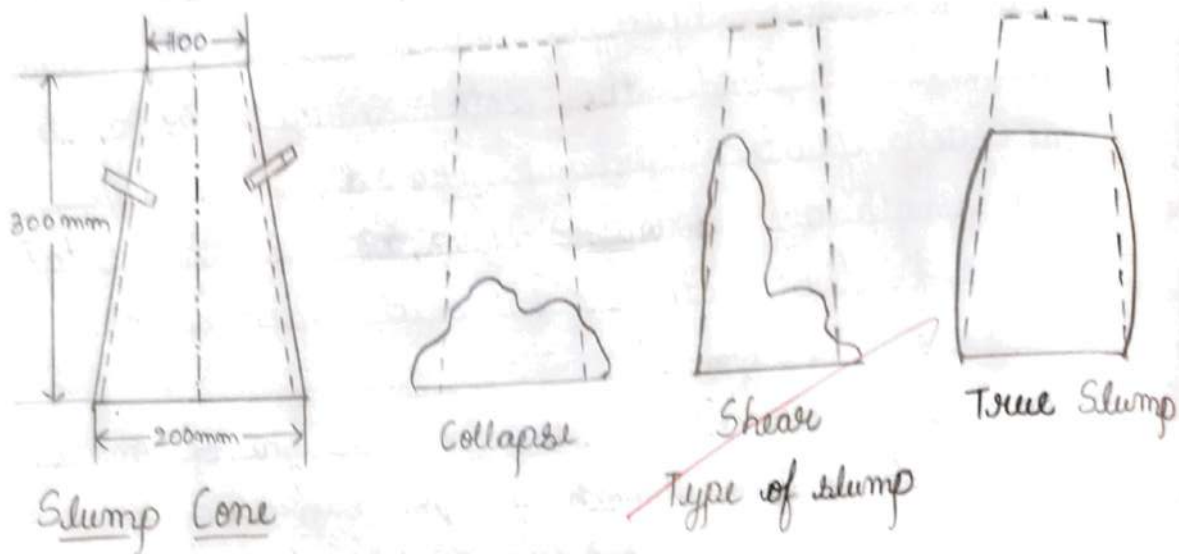 100
300mm
200mm
Slump Cone
Collapse
Shear
True Slump
Type of slump